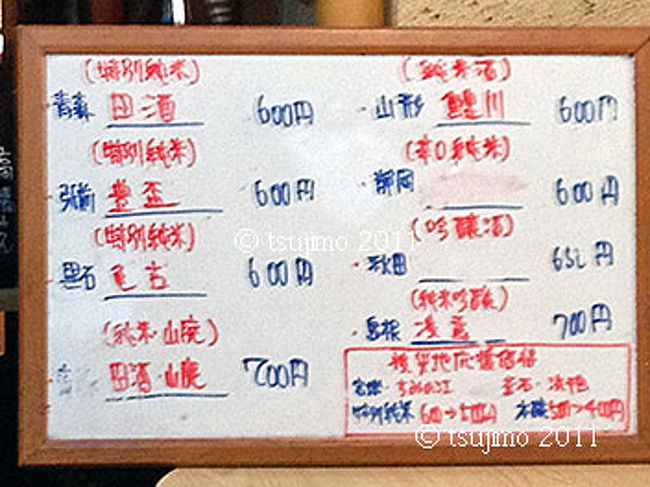 (特別純米)
青森 田酒 600円
(特別純米)
弘前 豊盃 600円
(特別純米)
黒石 亀吉 600円
(純米・山廃)
田酒・山廃 700円
(純米酒)
・山形 鯉川 600円
(辛口純米)
・静岡 600円
(吟醸酒)
・秋田 650円
(純米吟醸)
・島根 700円
被災地応援価格
宮城・ 釜石・浜千鳥
特別純米 600→500円 本醸500→400円
© tsujimo 2011
© tsujimo 2011